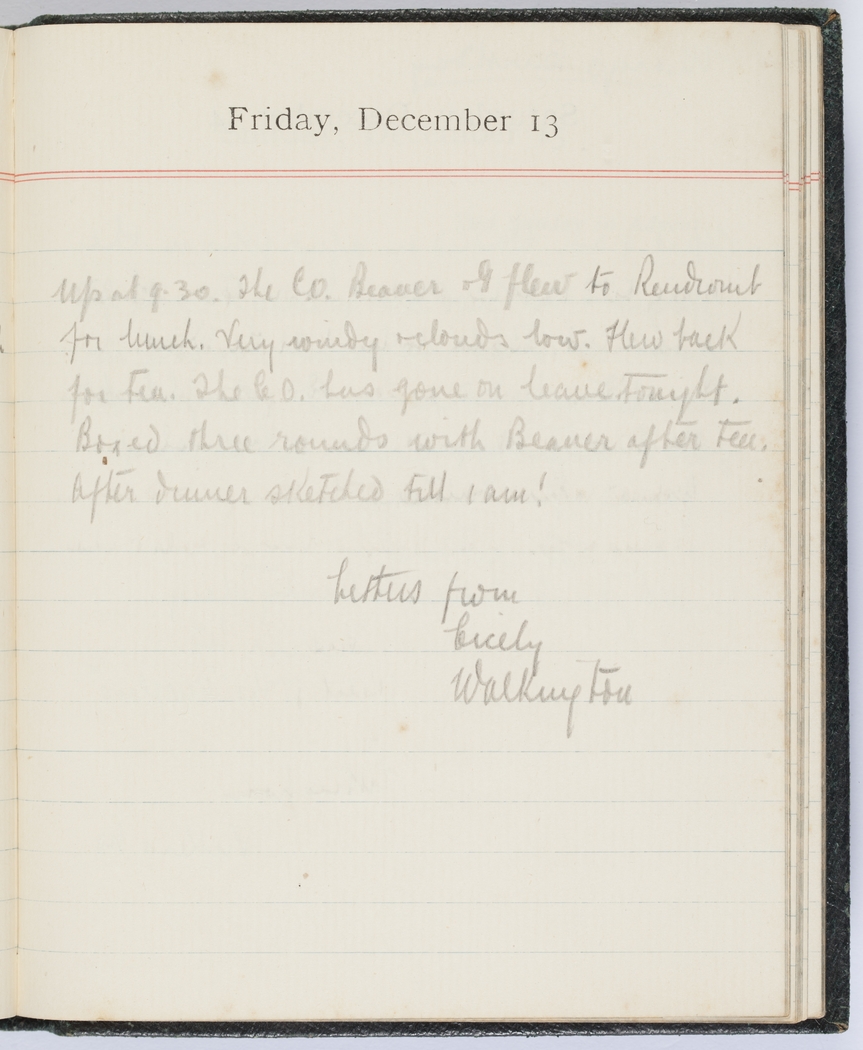 Friday, December 13
Up at 9.30. The C.O. Beaver & I flew to
for lunch. Very windy & clouds low. Flew back
for tea. The C.O. has gone on leave tonight.
Boxed three rounds with Beaver after tea.
After dinner sketched till 1 am!
Letters from
Cicely
Walkington